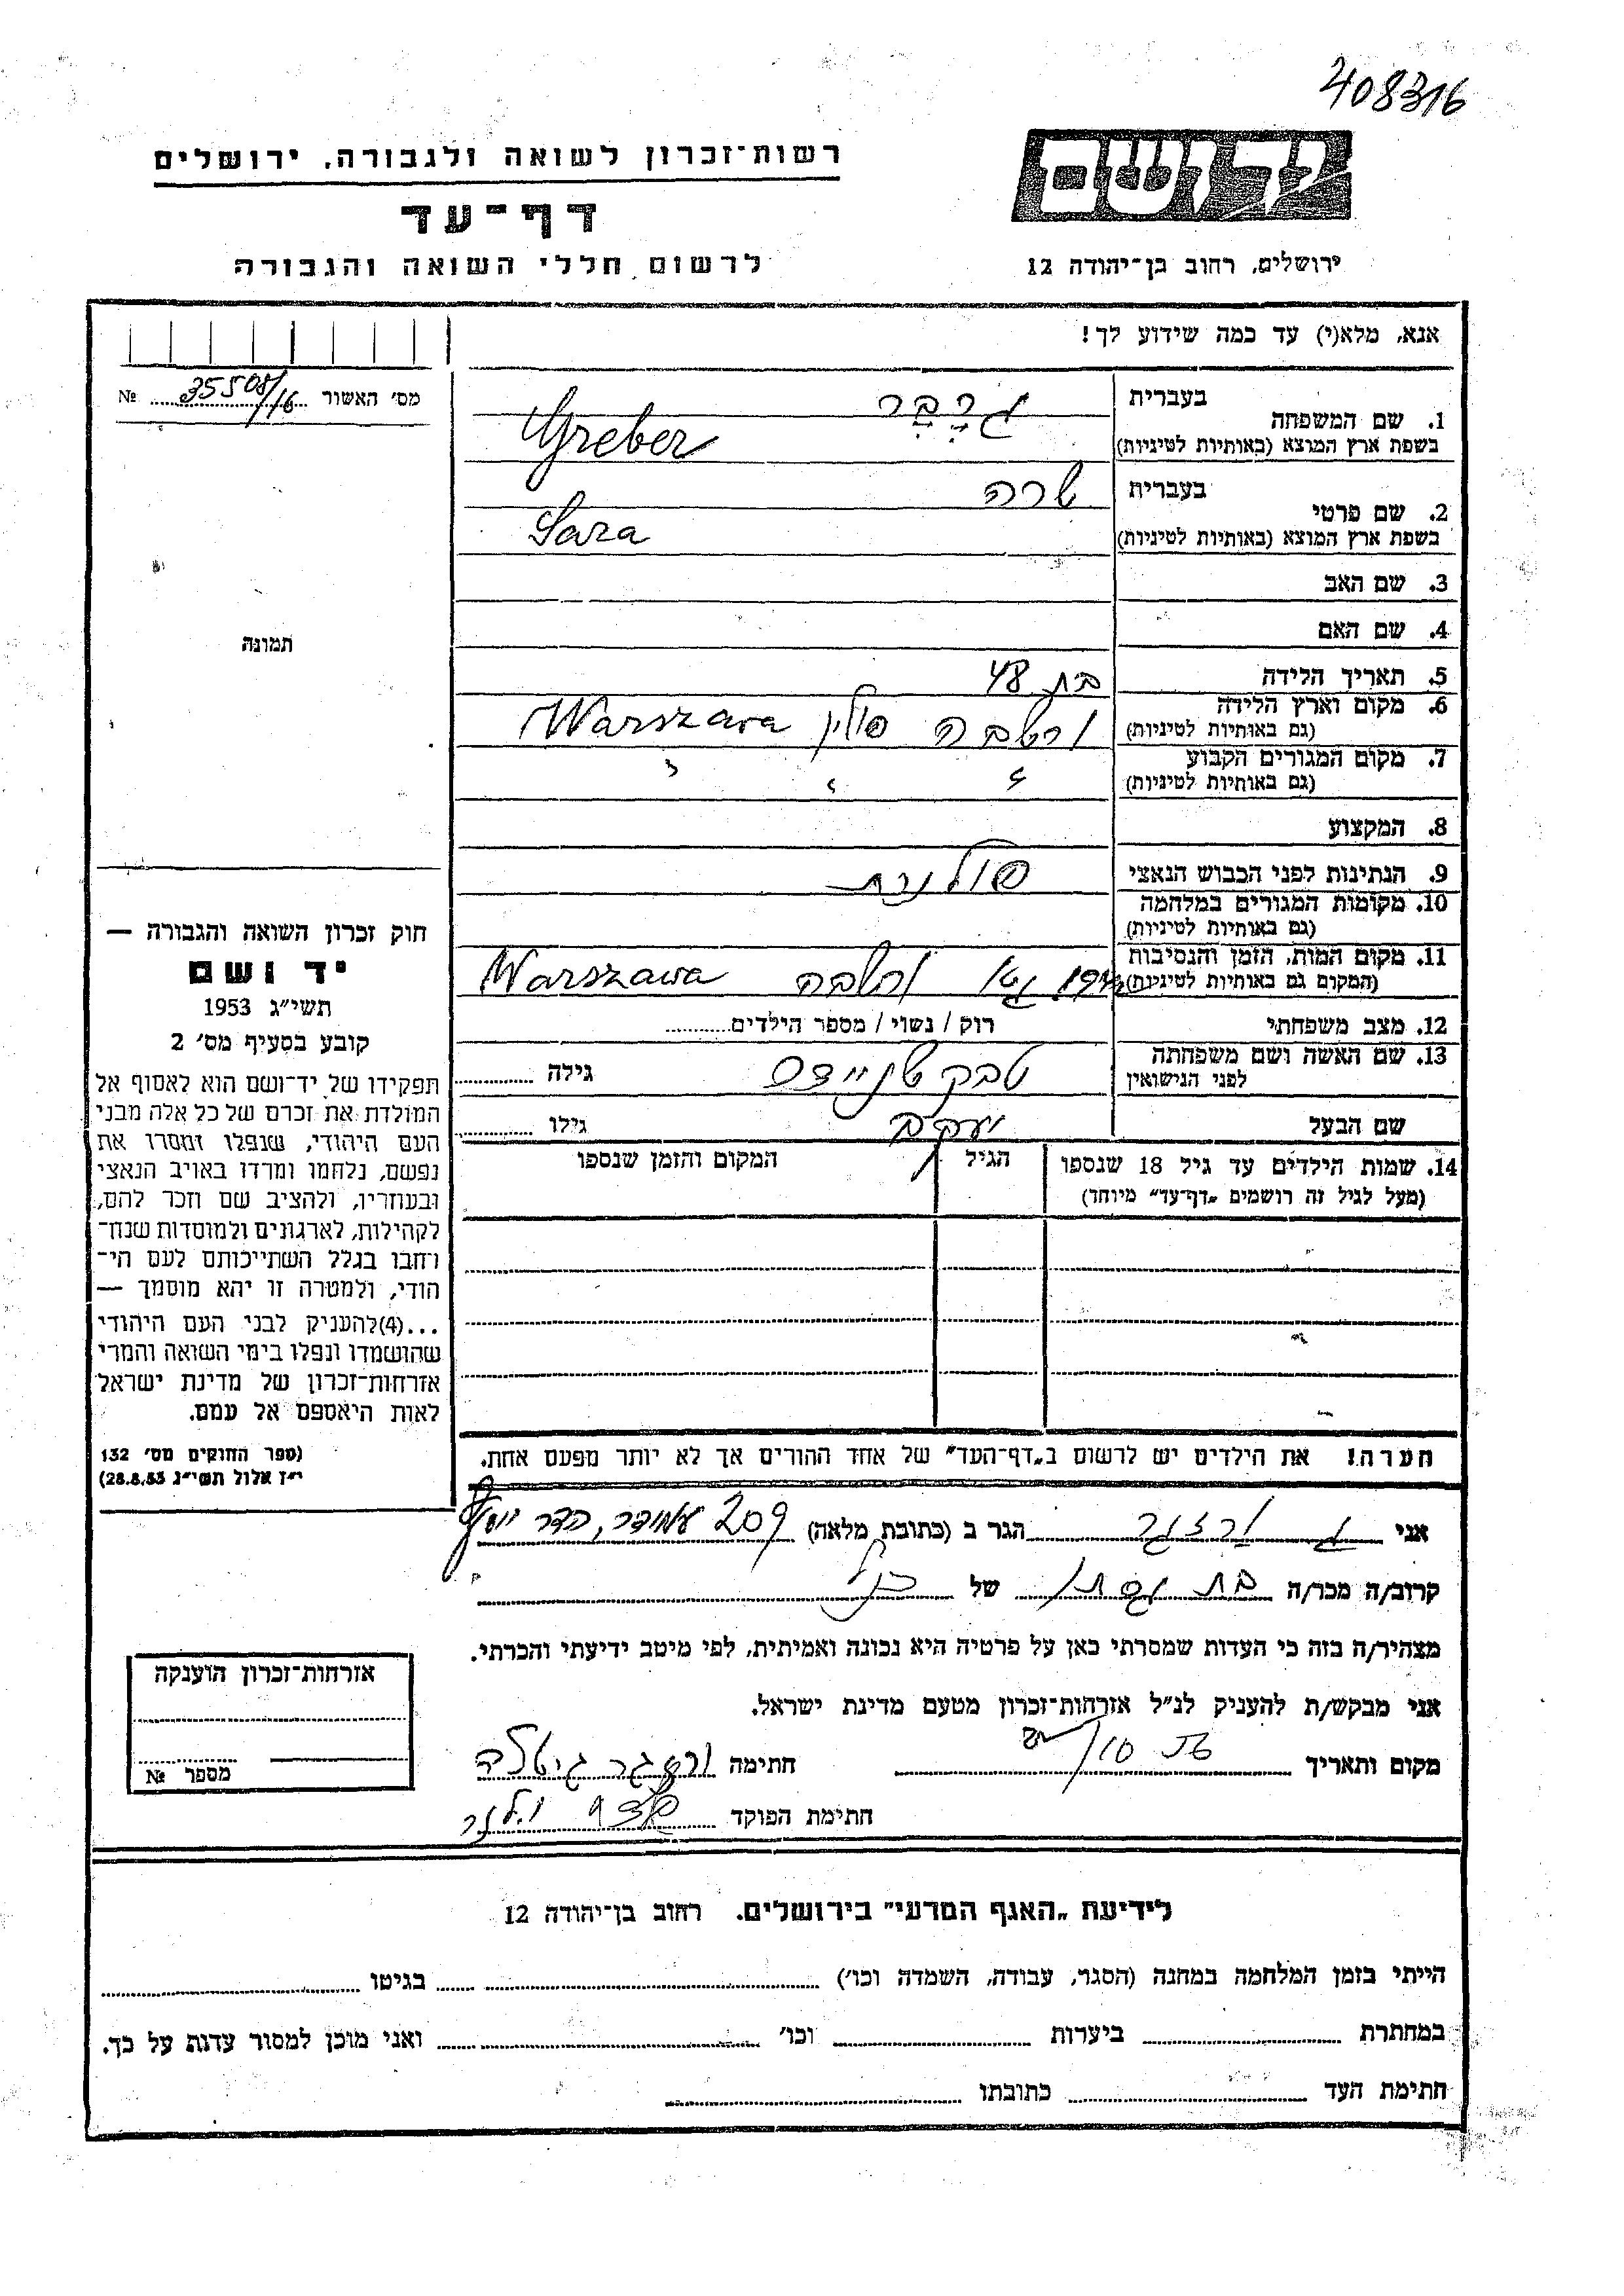 408316
יד ושם
רשות־זכרון לשואה ולגבורה, ירושלים
דף־עד
לרשום חללי השואה והגבורה
ירושלים, רחוב בן־יהודה 12
אנא, מלא(י) עד כמה שידוע לך!
מס׳ האשור 35508/16 №
תמונה
1. שם המשפחה בעברית גרבר
בשפת ארץ המוצא (באותיות לטיניות) Greber
2. שם פרטי בעברית שרה
בשפת ארץ המוצא (באותיות לטיניות) Sara
3. שם האב
4. שם האם
5. תאריך הלידה בת 48
6. מקום וארץ הלידה (גם באותיות לטיניות) ורשבה פולין Warszawa
7. מקום המגורים הקבוע (גם באותיות לטיניות) " " "
8. המקצוע
9. הנתינות לפני הכבוש הנאצי פולנית
10. מקומות המגורים במלחמה (גם באותיות לטיניות)
11. מקום המות, הזמן והנסיבות (המקום גם באותיות לטיניות) גטו ורשבה Warszawa
12. מצב משפחתי רוק / נשוי / מספר הילדים
13. שם האשה ושם משפחתה לפני הנישואין גילה
שם הבעל יעקב גילו
14. שמות הילדים עד גיל 18 שנספו הגיל המקום והזמן שנספו
(מעל לגיל זה רושמים „דף־עד״ מיוחד)
הערה! את הילדים יש לרשום ב„דף־העד״ של אחד ההורים אך לא יותר מפעם אחת.
חוק זכרון השואה והגבורה —
יד ושם
תשי״ג 1953
קובע בסעיף מס׳ 2
תפקידו של יד־ושם הוא לאסוף אל
המולדת את זכרם של כל אלה מבני
העם היהודי, שנפלו ומסרו את
נפשם, נלחמו ומרדו באויב הנאצי
ובעוזריו, ולהציב שם וזכר להם,
לקהילות, לארגונים ולמוסדות שנח־
רחבו בגלל השתייכותם לעם הי־
הודי, ולמטרה זו יהא מוסמך —
...(4)להעניק לבני העם היהודי
שהושמדו ונפלו בימי השואה והמרי
אזרחות־זכרון של מדינת ישראל
לאות היאספם אל עמם.
(ספר החוקים מס׳ 132
י״ז אלול תשי״ג 28.8.53)
אני הגר ב (כתובת מלאה) 209
קרוב/ה מכר/ה של
מצהיר/ה בזה כי העדות שמסרתי כאן על פרטיה היא נכונה ואמיתית, לפי מיטב ידיעתי והכרתי.
אני מבקש/ת להעניק לנ״ל אזרחות־זכרון מטעם מדינת ישראל.
מקום ותאריך חתימה
חתימת הפוקד
אזרחות־זכרון הוענקה
מספר №
לידיעת „האגף המדעי״ בירושלים. רחוב בן־יהודה 12
הייתי בזמן המלחמה במחנה (הסגר, עבודה, השמדה וכו׳) בגיטו
במחתרת ביערות וכו׳ ואני מוכן למסור עדות על כך.
חתימת העד כתובתו